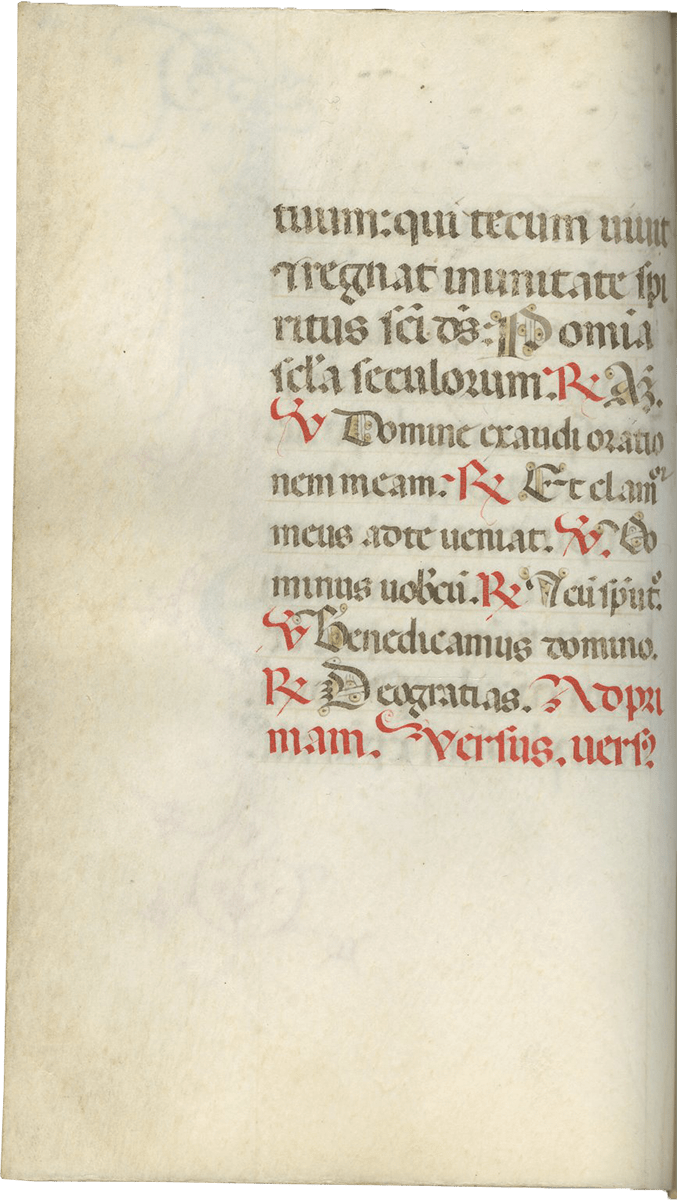 tuum: qui tecum uiuit
⁊ regnat in unitate spi
ritus sc̄i d̄s: Per omīa
scl̓a seculorum: ℟ Am̄.
℣ Domine exaudi oratio
nem meam: ℟ Et clamor
meus ad te ueniat. ℣. Do
minus uob̓cū. ℟ ⁊ cū sp̄u t°.
℣ Benedicamus domino.
℟ Deo gratias. Ad pri
mam. Versus. uers̓